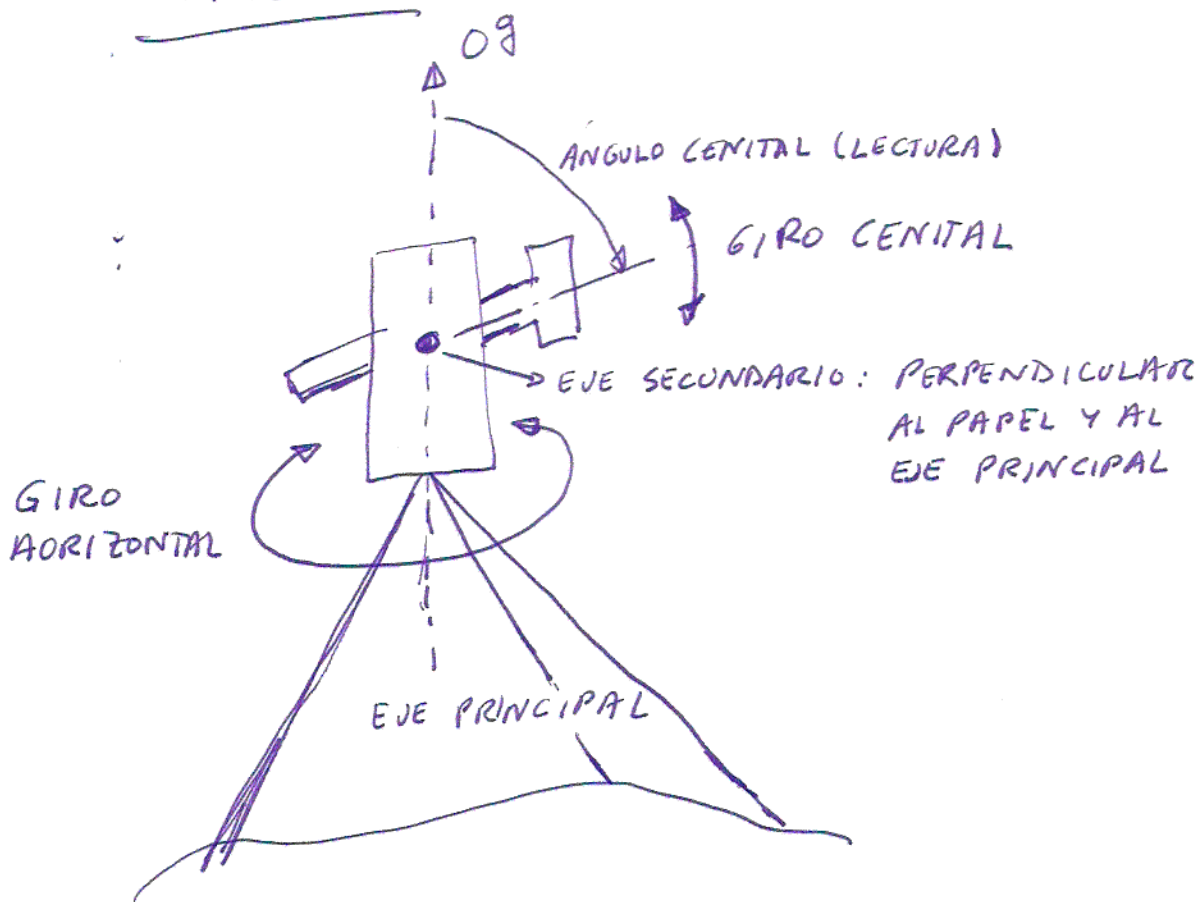 0g
ÁNGULO CENITAL (LECTURA)
GIRO CENITAL
EJE SECUNDARIO: PERPENDICULAR
AL PAPEL Y AL
EJE PRINCIPAL
GIRO
HORIZONTAL
EJE PRINCIPAL